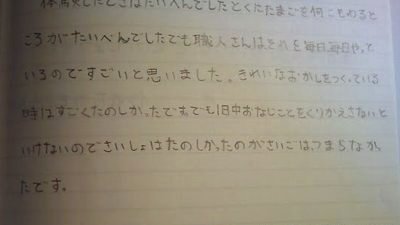 体験したときはたいへんでしたとくにたまごを何こもわると
ころがたいへんでしたでも職人さんはそれを毎日、毎日やって
いるのですごいと思いました。きれいなおかしをつくっている
時はすごくたのしかったです。でも1日中おなじことをくりかえさないと
いけないのでさいしょはたのしかったのがさいごは、つまらなかっ
たです。